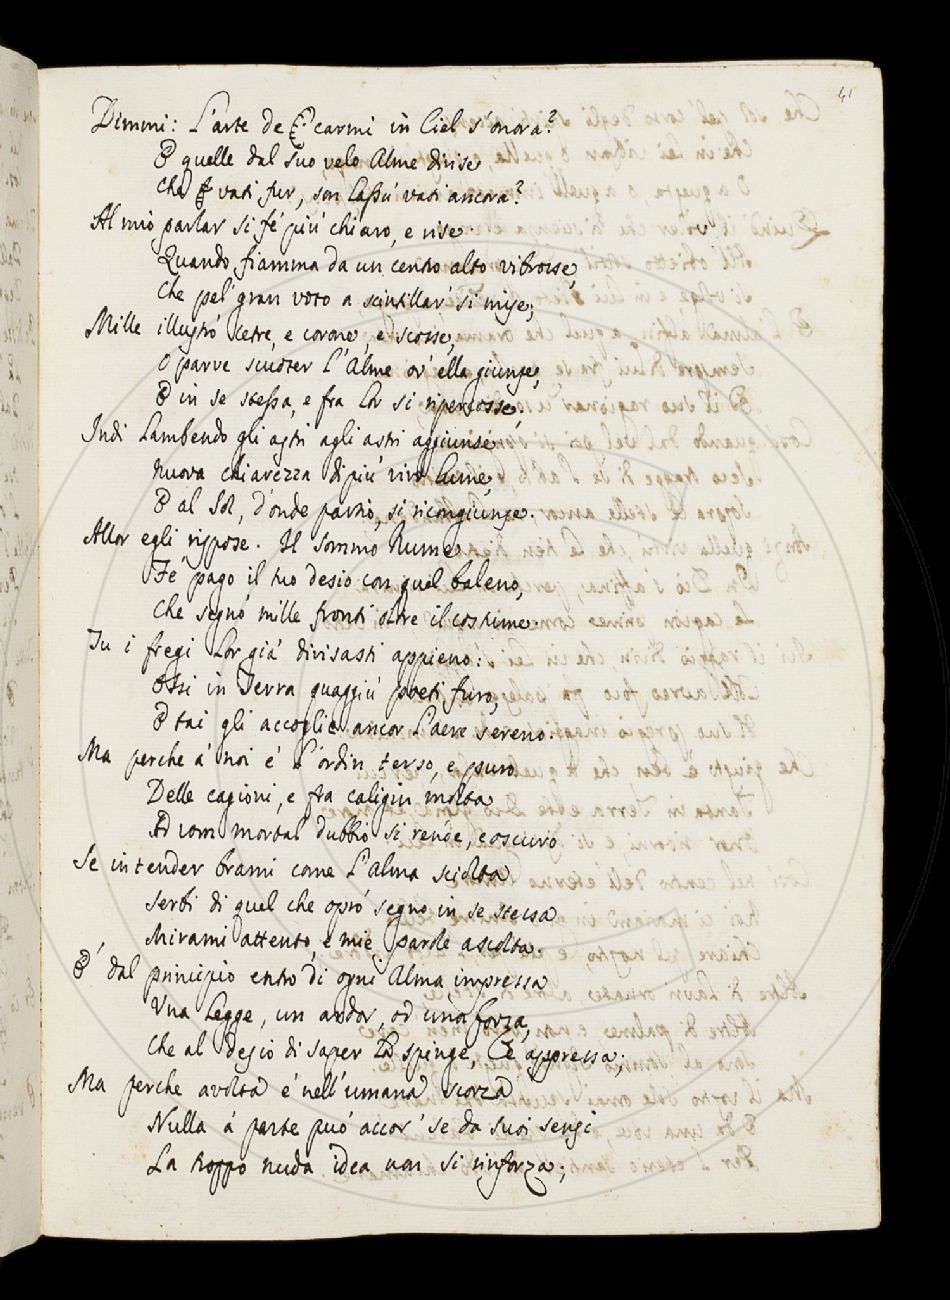 41
Dimmi: L'arte de carmi in Ciel s'onora?
E quelle dal suo velo Alme divise
Che vati fur, son lassù vati ancora?
Al mio parlar si fé più chiaro, e rise
Quando fiamma da un centro alto vibrosse,
Che pel gran voto a scintillar si mise;
Mille illustrò cetre, e corone, e scosse,
O parve scuoter l'Alme ov'ella giunse,
E in se stessa, e fra lor si ripercosse,
Indi lambendo gli astri agli astri aggiunse
Nuova chiarezza di più vivo lume,
E al Sol, d'onde partio, si ricongiunse.
Allor egli rispose. Il sommo Nume
Fe' pago il tuo desio con quel baleno,
Che segnò mille fronti oltre il costume
Tu i fregi lor già divisasti appieno:
Essi in Terra quaggiù poeti furo,
E tai gli accoglie ancor l'aere sereno.
Ma perche à noi è l'ordin terso, e puro
Delle cagioni, e fra caligin molta
Ad uom mortal dubbio si rende, e oscuro
Se intender brami come l'alma sciolta
Serbi di quel che oprò segno in se stessa
Mirami attento, e mie parole ascolta.
E' dal principio entro di ogni Alma impressa
Una Legge, un ardor, od una forza,
Che al desio di saper la spinge, e appressa;
Ma perche avolta è nell'umana scorza
Nulla à parte può accor se da suoi sensi
La troppo nuda idea non si rinforza;